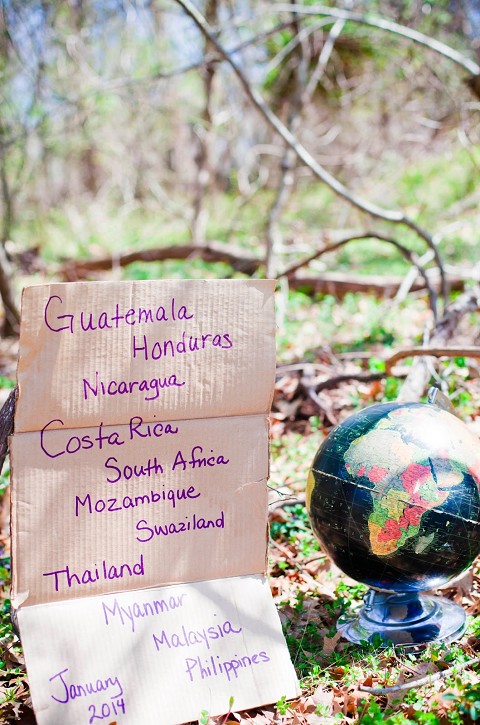 Guatemala
Honduras
Nicaragua
Costa Rica
South Africa
Mozambique
Swaziland
Thailand
Myanmar
Malaysia
Philippines
January
2014